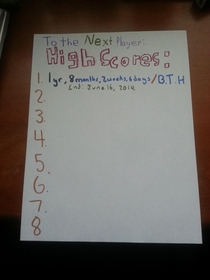 To the Next Player:
High Scores:
1. 1yr, 8months, 2weeks, 6days/B.T.H
End: June 16, 2014
2.
3.
4.
5.
6.
7.
8